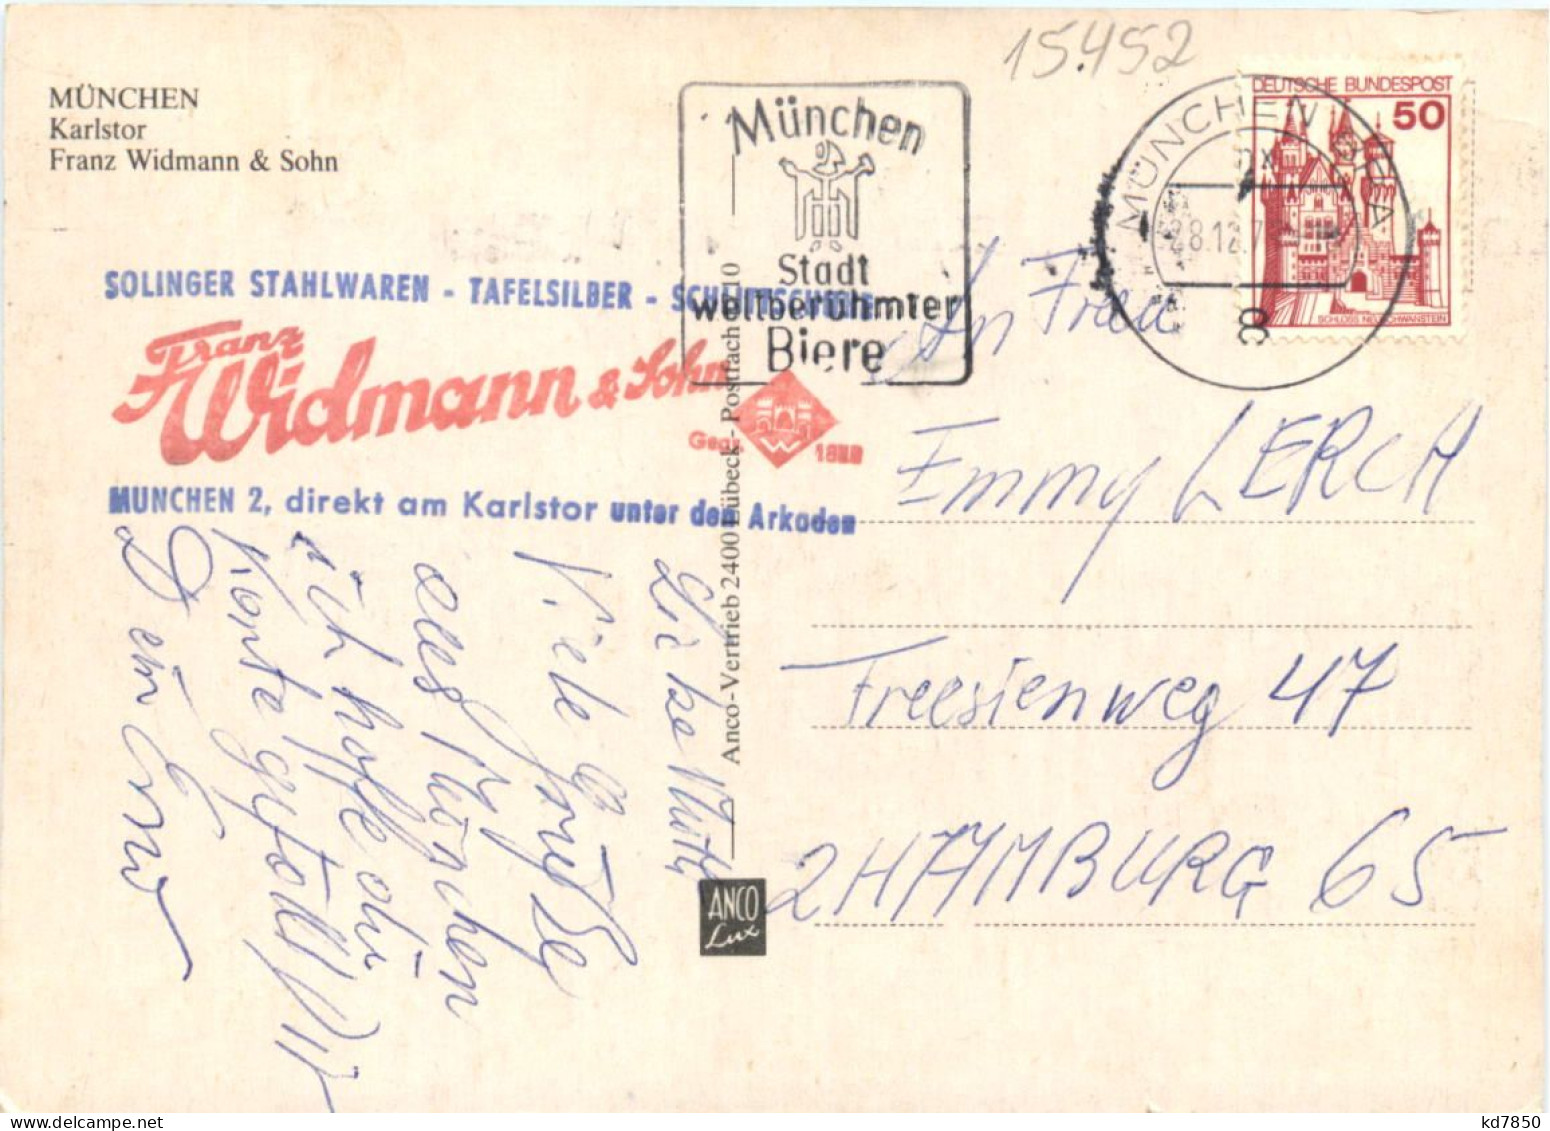 15.452
MÜNCHEN
Karlstor
Franz Widmann & Sohn
München
Stadt
weltberühmter
Biere
DEUTSCHE BUNDESPOST
50
SCHLOSS NEUSCHWANSTEIN
MÜNCHEN
28.12.7
SOLINGER STAHLWAREN - TAFELSILBER -
Franz
Widmann & Sohn
Gegr. 18
MÜNCHEN 2, direkt am Karlstor unter den Arkaden
An Frau
Emmy LERCH
Freesienweg 47
2 HAMBURG 65
Liebe
Viele Grüße
aus München
ich hoffe dir
Karte gefällt dir
Dein
Anco-Vertrieb 2400 Lübeck - Postfach 10
ANCO
Lux
kd7850